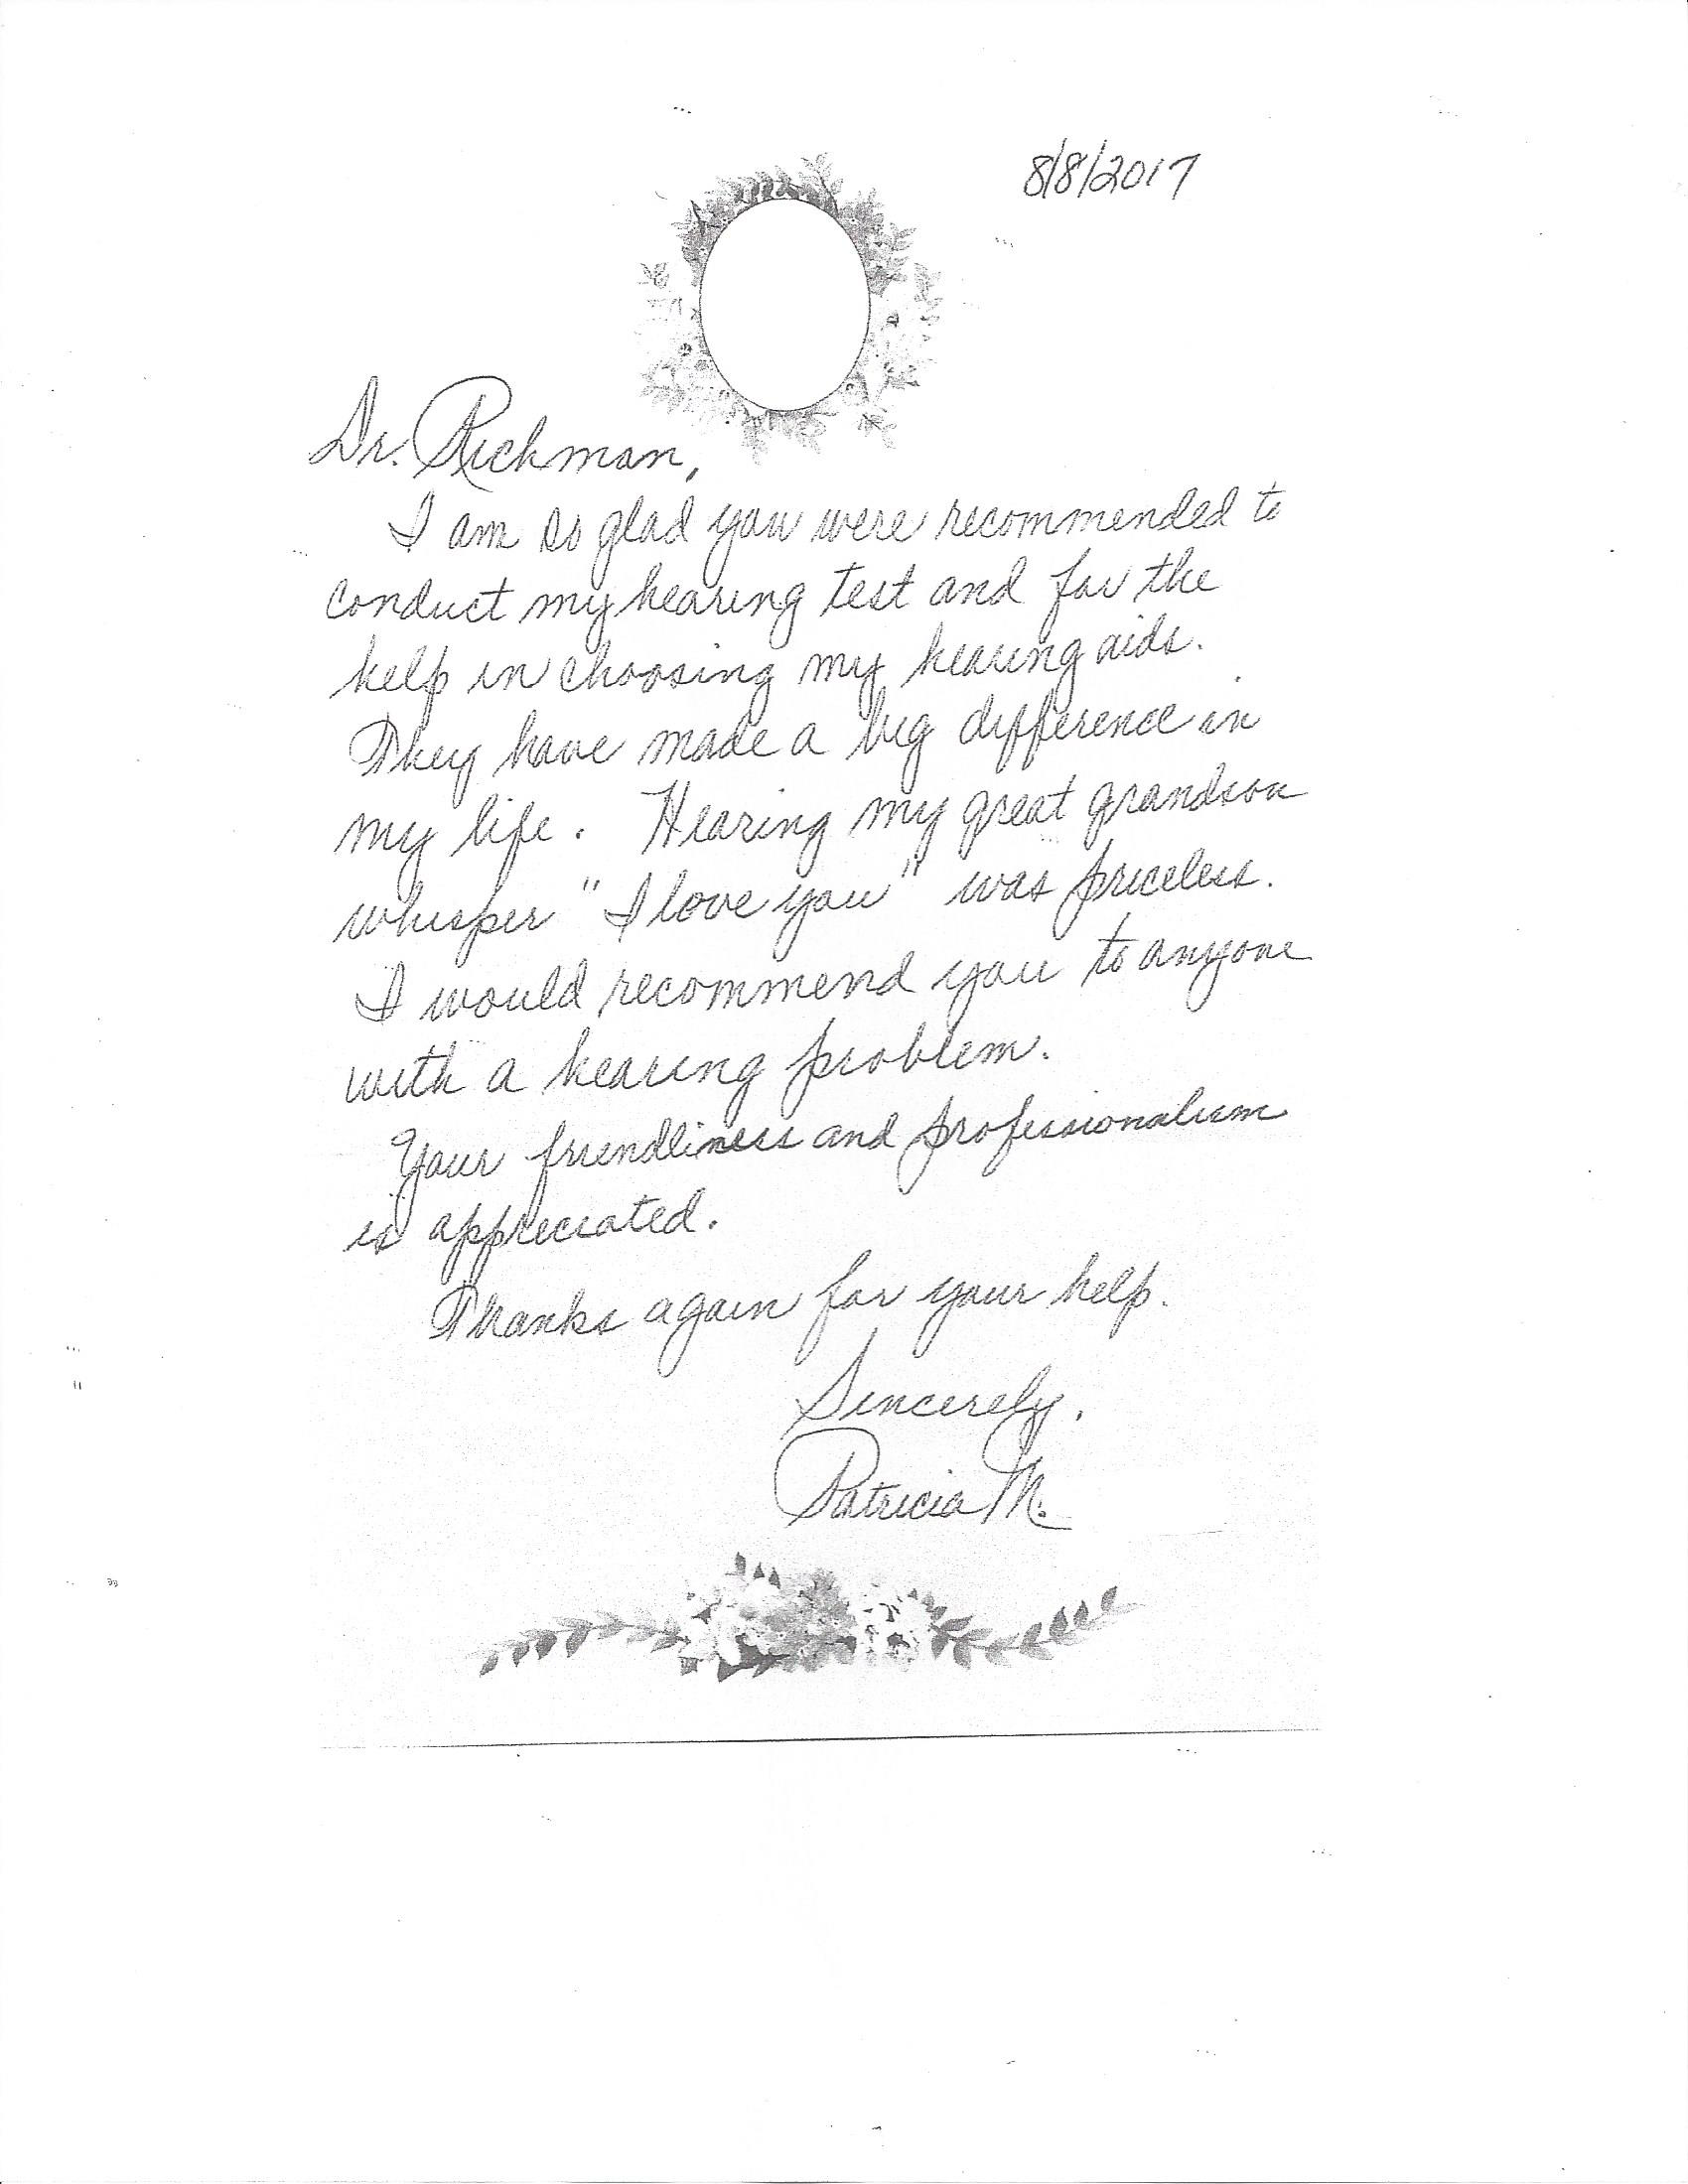 8/8/2017
Dr. Richman,
I am so glad you were recommended to
conduct my hearing test and for the
help in choosing my hearing aids.
They have made a big difference in
my life. Hearing my great grandson
whisper "I love you" was priceless.
I would recommend you to anyone
with a hearing problem.
Your friendliness and professionalism
is appreciated.
Thanks again for your help.
Sincerely,
Patricia M.